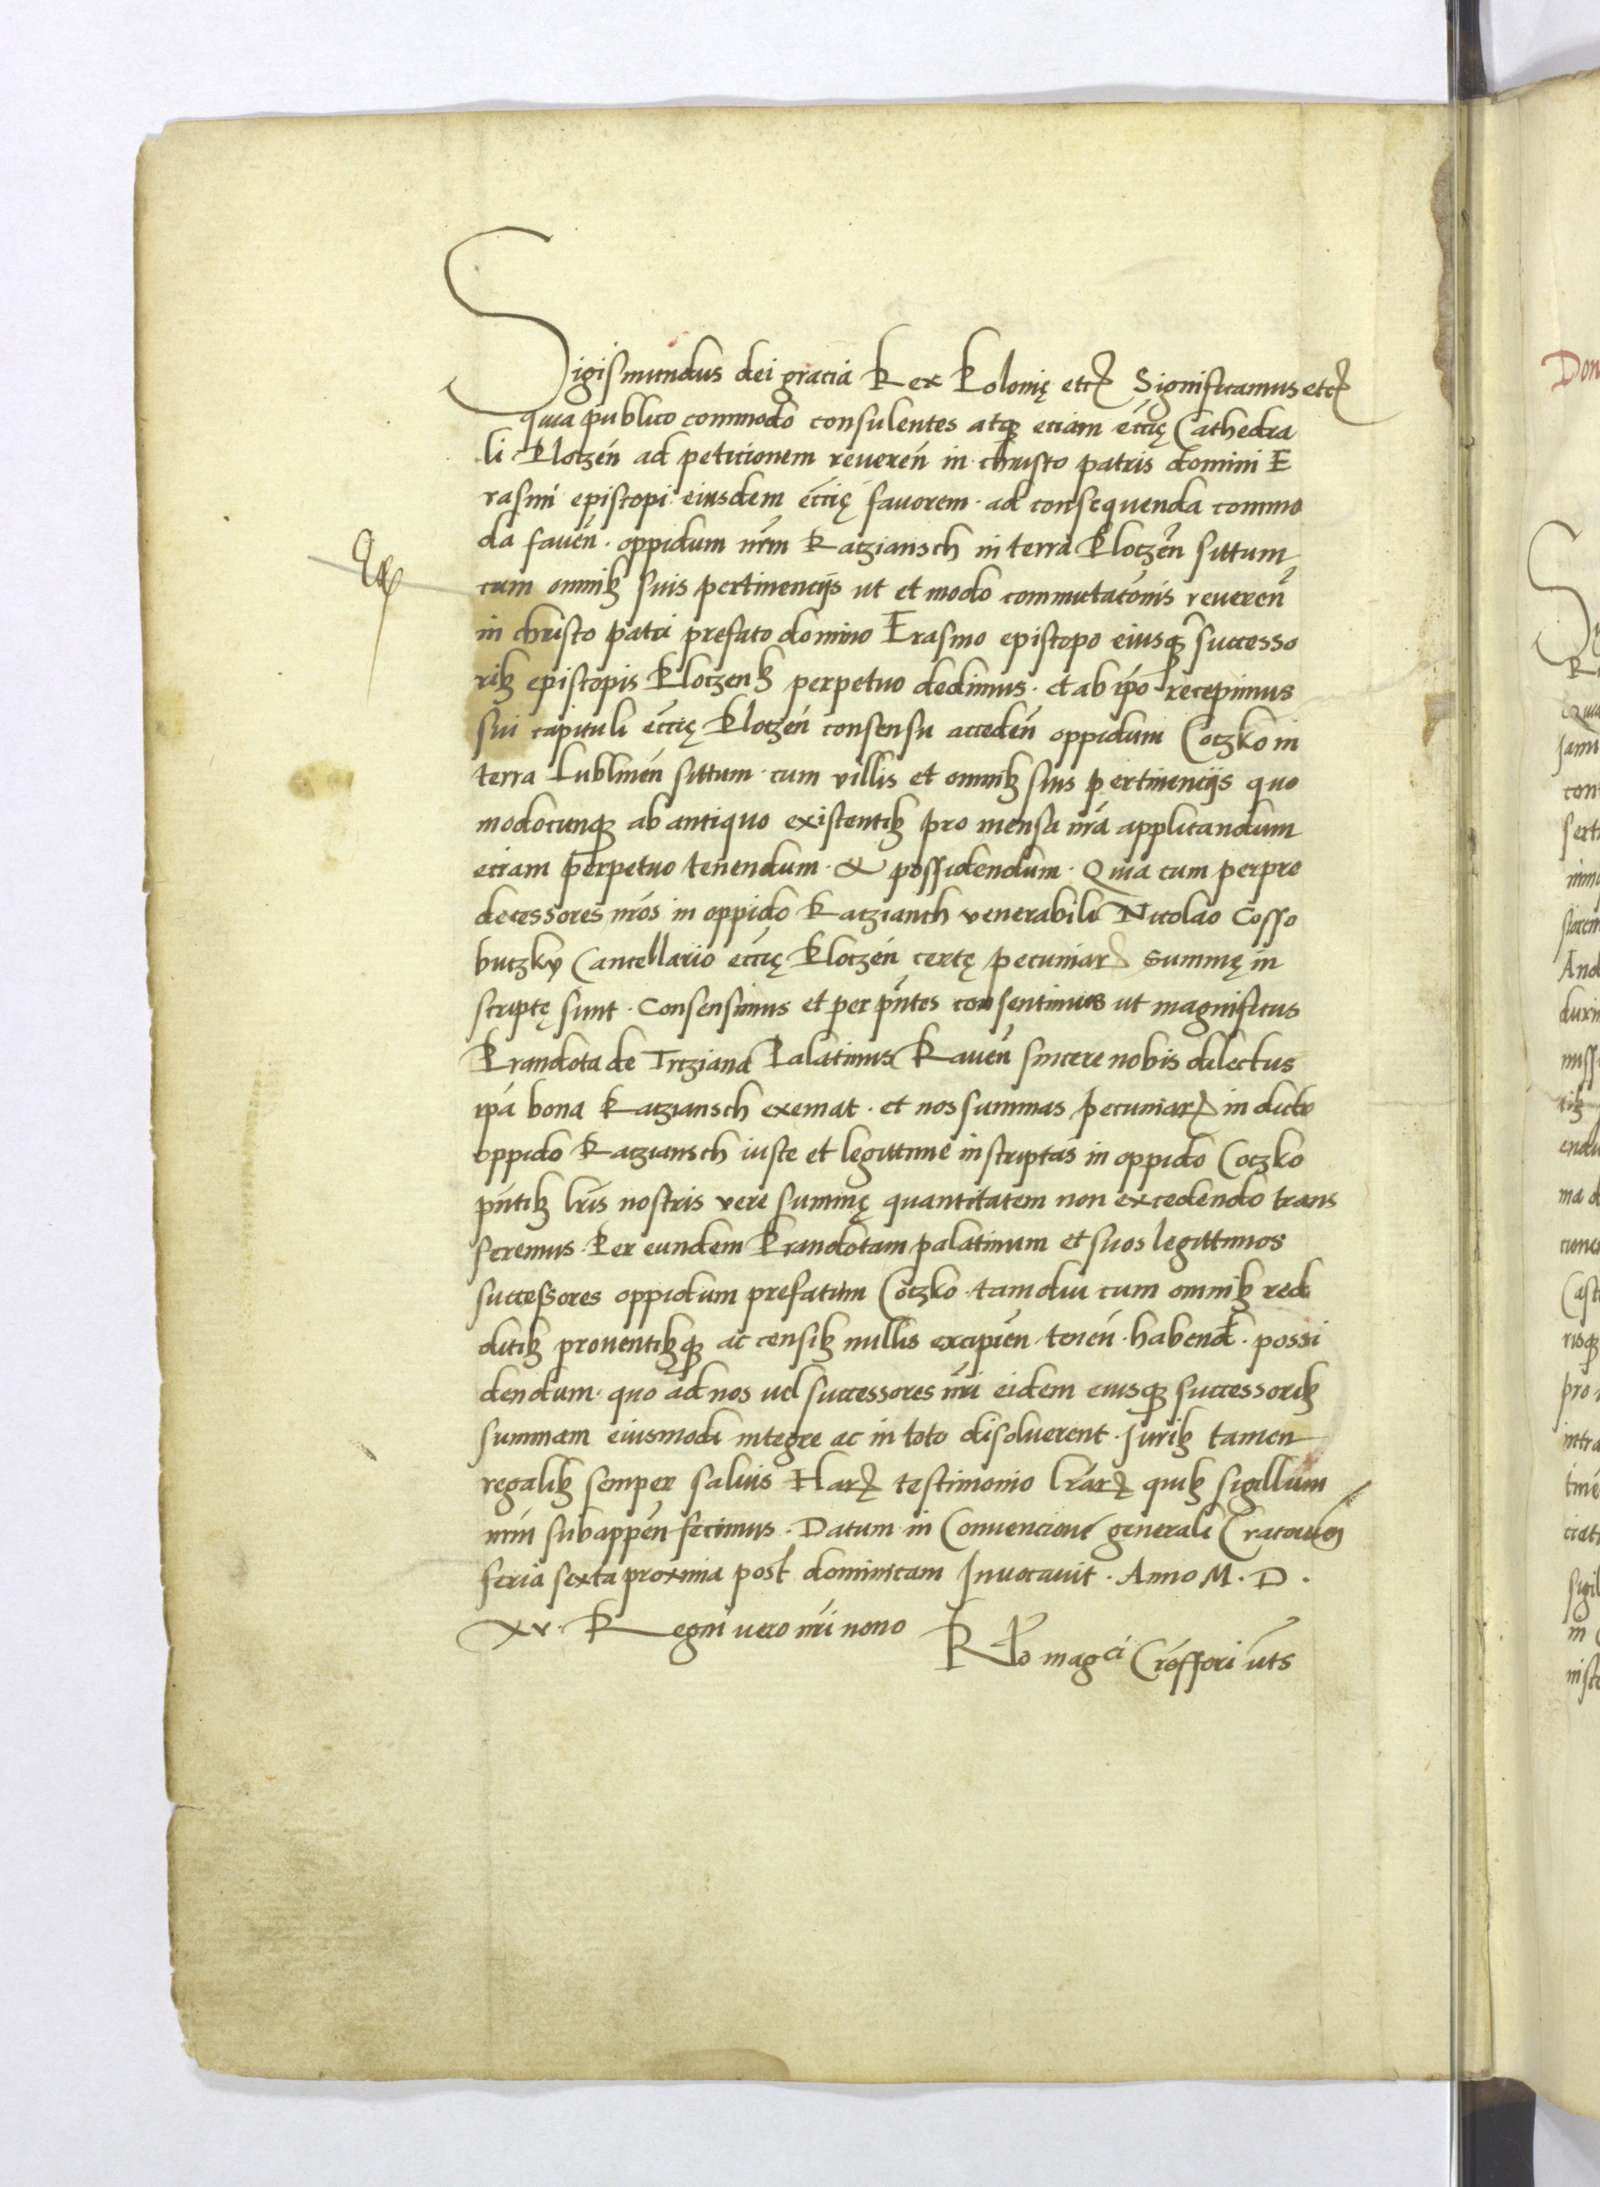 Sigismundus dei gracia Rex Polonię etcꝫ Significamus etcꝫ
quia publico commodo consulentes atqꝫ eciam eccię Cathedra
li Ploczen̄ ad peticionem reveren̄ in christo patris domini E
rasmi episcopi eiusdem eccię favorem · ad consequenda commo
da faven̄ · oppidum nr̄m Racziansch in terra Ploczen̄ situm
cum omnibꝫ suis pertinencijs ut et modo commutacōnis reveren̄
in christo patri prefato domino Erasmo episcopo eiusqꝫ successo
ribꝫ episcopis Ploczenbꝫ perpetuo dedimus · et ab ip̄o recepimus
sui capituli eccię Ploczen̄ consensu acceden̄ oppidum Coczko in
terra Lublinen̄ situm · cum villis et omnibꝫ suis pertinencijs quo
modocunqꝫ ab antiquo existentibꝫ pro mensa nr̄a applicandum
eciam perpetuo tenendum · & possidendum · Quia cum per pre
decessores nr̄os in oppido Raczianch venerabili Nicolao Cosso
buczky Cancellario eccię Ploczen̄ certę pecuniarꝝ summę in
scriptę sunt · Consensimus et per pn̄tes consentimus ut magnificus
Prandota de Trcziana Palatinus Raven̄ sincere nobis dilectus
ip̄a bona Racziansch exemat · et nos summas pecuniarꝝ in dicto
oppido Raczansch iuste et legittime inscriptas in oppido Coczko
pn̄tibꝫ lr̄is nostris vere summę quantitatem non excedendo trans
feremus · Per eundem Prandotam palatinum et suos legittimos
successores oppidum prefatum Coczko · tamdiu cum omnibꝫ red
ditibꝫ proventibꝫqꝫ ac censibꝫ nullis excipien̄ · tenen̄ · habend̄ · possi
dendum · quo ad nos vel successores nr̄i eidem eiusqꝫ successoribꝫ
summam eiusmodi integre ac in toto disolverent · Juribꝫ tamen
regalibꝫ semper salvis Harꝝ testimonio lr̄arꝝ quibꝫ sigillum
nr̄m subappen̄ fecimus · Datum in Convencione generali Cracovien̄
feria sexta proxima post dominicam Invocavit · Anno M · D ·
xv · Regni vero nr̄i nono
Rlo mag^ci Crōffori ut̄s